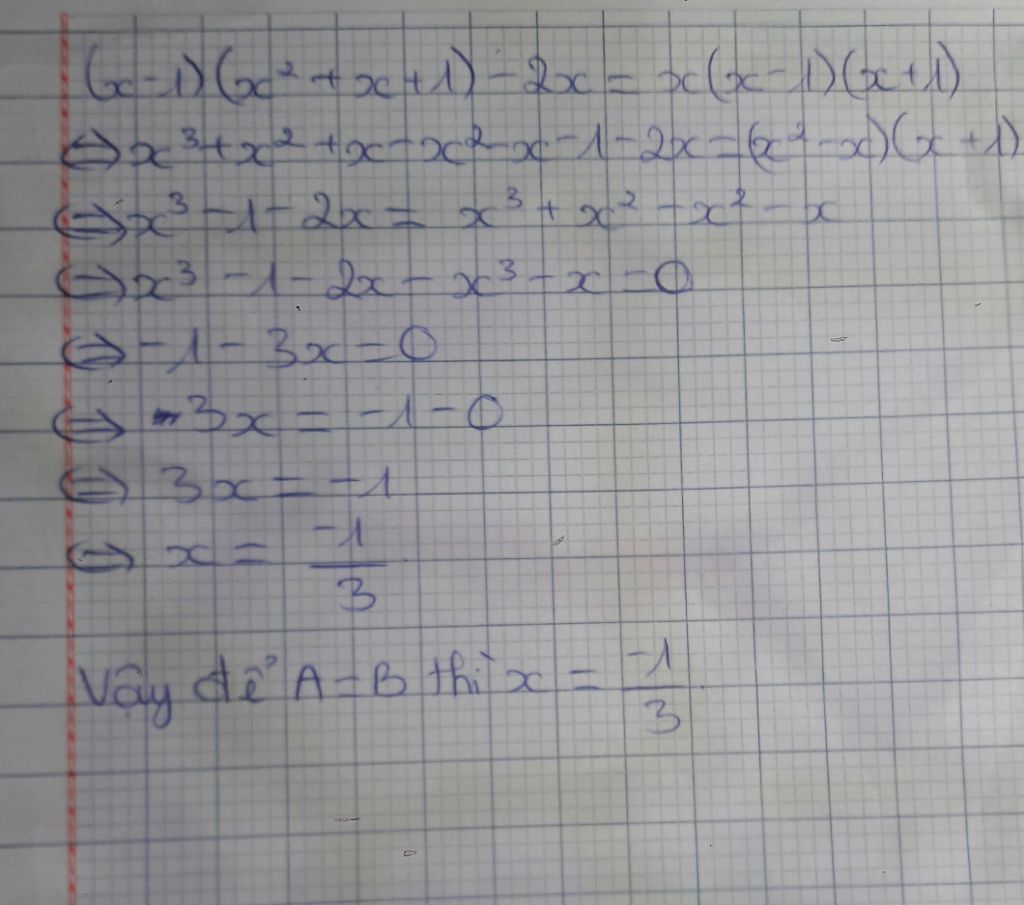 (x-1)(x²+x+1)-2x=x(x-1)(x+1)
⇔x³+x²+x-x²-x-1-2x=(x²-x)(x+1)
⇔x³-1-2x=x³+x²-x²-x
⇔x³-1-2x-x³-x=0
⇔-1-3x=0
⇔-3x=-1-0
⇔3x=-1
⇔x=\frac{-1}{3}
Vậy để A=B thì x=\frac{-1}{3}.